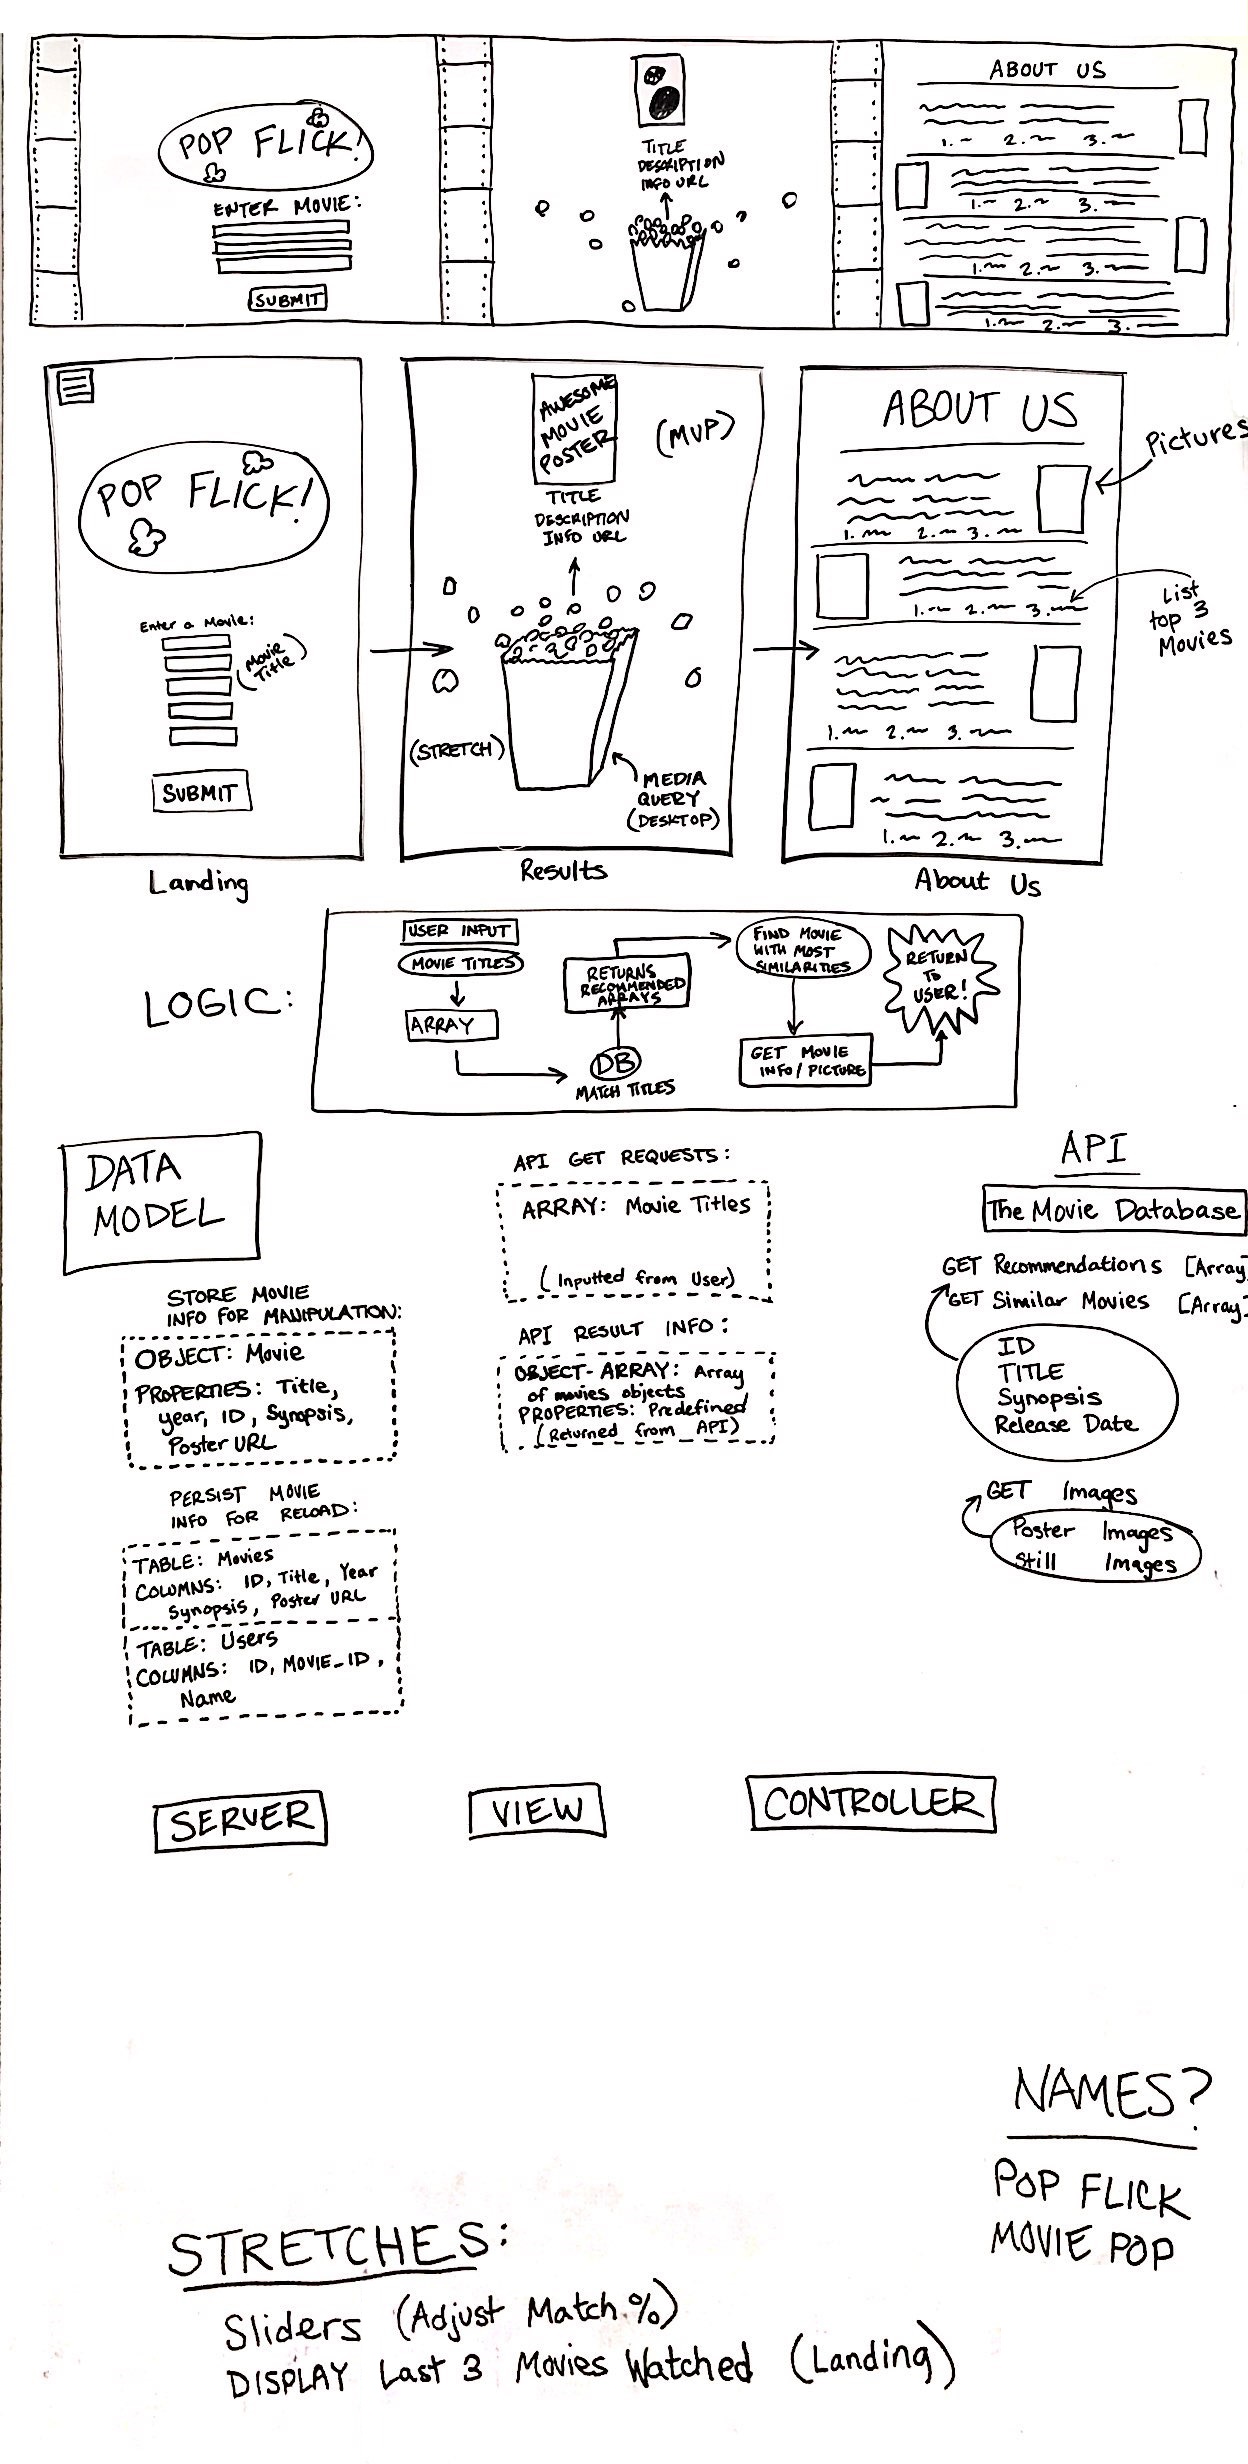 POP FLICK!
ENTER MOVIE:
SUBMIT
TITLE
DESCRIPTION
INFO URL
ABOUT US
1. 2. 3.
1. 2. 3.
1. 2. 3.
1. 2. 3.
POP FLICK!
Enter a Movie:
(Movie
Title)
SUBMIT
Landing
AWESOME
MOVIE
POSTER
(MVP)
TITLE
DESCRIPTION
INFO URL
(STRETCH)
MEDIA
QUERY
(DESKTOP)
Results
ABOUT US
Pictures
1. 2. 3.
1. 2. 3.
List
top 3
Movies
1. 2. 3.
1. 2. 3.
About Us
LOGIC:
USER INPUT
MOVIE TITLES
ARRAY
DB
MATCH TITLES
RETURNS
RECOMMENDED
ARRAYS
FIND MOVIE
WITH MOST
SIMILARITIES
GET MOVIE
INFO/PICTURE
RETURN
TO
USER!
DATA
MODEL
STORE MOVIE
INFO FOR MANIPULATION:
OBJECT: Movie
PROPERTIES: Title,
year, ID, Synopsis,
Poster URL
PERSIST MOVIE
INFO FOR RELOAD:
TABLE: Movies
COLUMNS: ID, Title, Year
Synopsis, Poster URL
TABLE: Users
COLUMNS: ID, MOVIE_ID,
Name
API GET REQUESTS:
ARRAY: Movie Titles
(Inputted from User)
API RESULT INFO:
OBJECT-ARRAY: Array
of movies objects
PROPERTIES: Predefined
(Returned from API)
API
The Movie Database
GET Recommendations [Array]
GET Similar Movies [Array]
ID
TITLE
Synopsis
Release Date
GET Images
Poster Images
Still Images
SERVER
VIEW
CONTROLLER
NAMES?
POP FLICK
MOVIE POP
STRETCHES:
Sliders (Adjust Match %)
DISPLAY Last 3 Movies Watched (Landing)